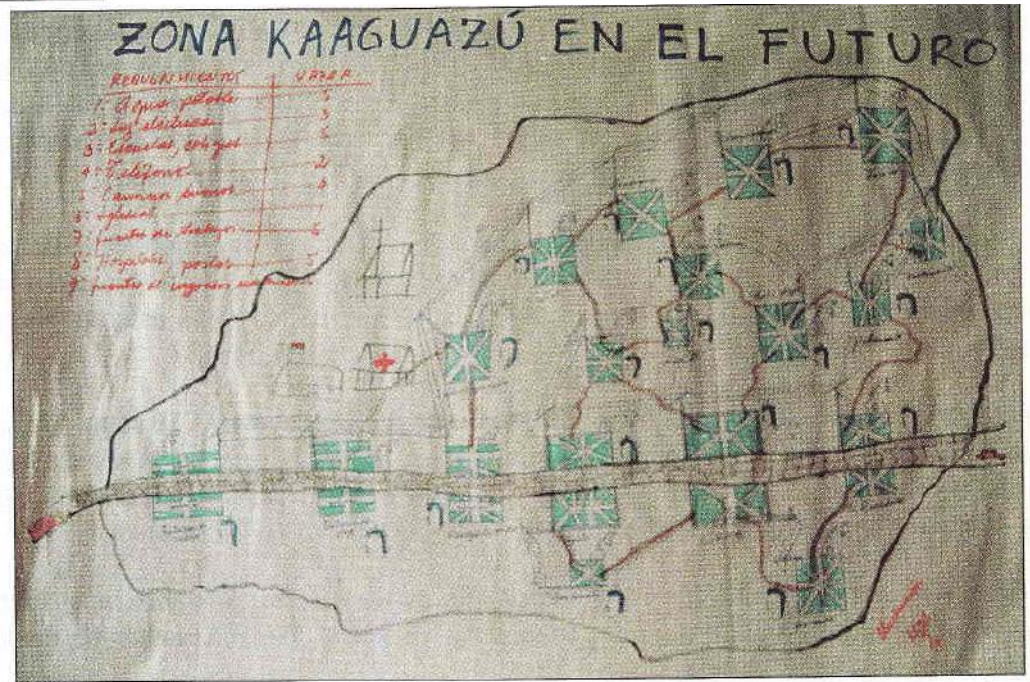 ZONA KAAGUAZÚ EN EL FUTURO
REQUERIMIENTOS
1. Agua potable 5
2. Luz electrica 3
3. Escuelas, colegios 5
4. Telefono 2
5. Caminos buenos 4
6. Iglesias
7. fuentes de trabajo 5
8. Hospitales postas 5
9. fuentes de ingresos